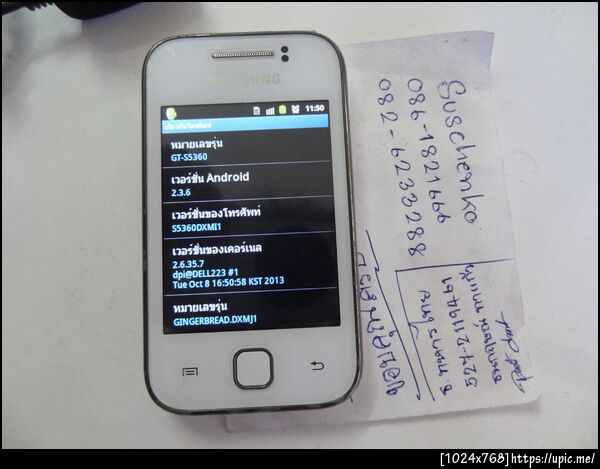 SAMSUNG
11:50
เกี่ยวกับโทรศัพท์
หมายเลขรุ่น
GT-S5360
เวอร์ชั่น Android
2.3.6
เวอร์ชั่นของโทรศัพท์
S5360DXMI1
เวอร์ชั่นของเคอร์เนล
2.6.35.7
dpi@DELL223 #1
Tue Oct 8 16:50:58 KST 2013
หมายเลขรุ่น
GINGERBREAD.DXMJ1
Suschenko
086-1821666
082-6233288
ธ.ทหารไทย
527-2119461
ขอบคุณครับ
[1024x768]https://upic.me/